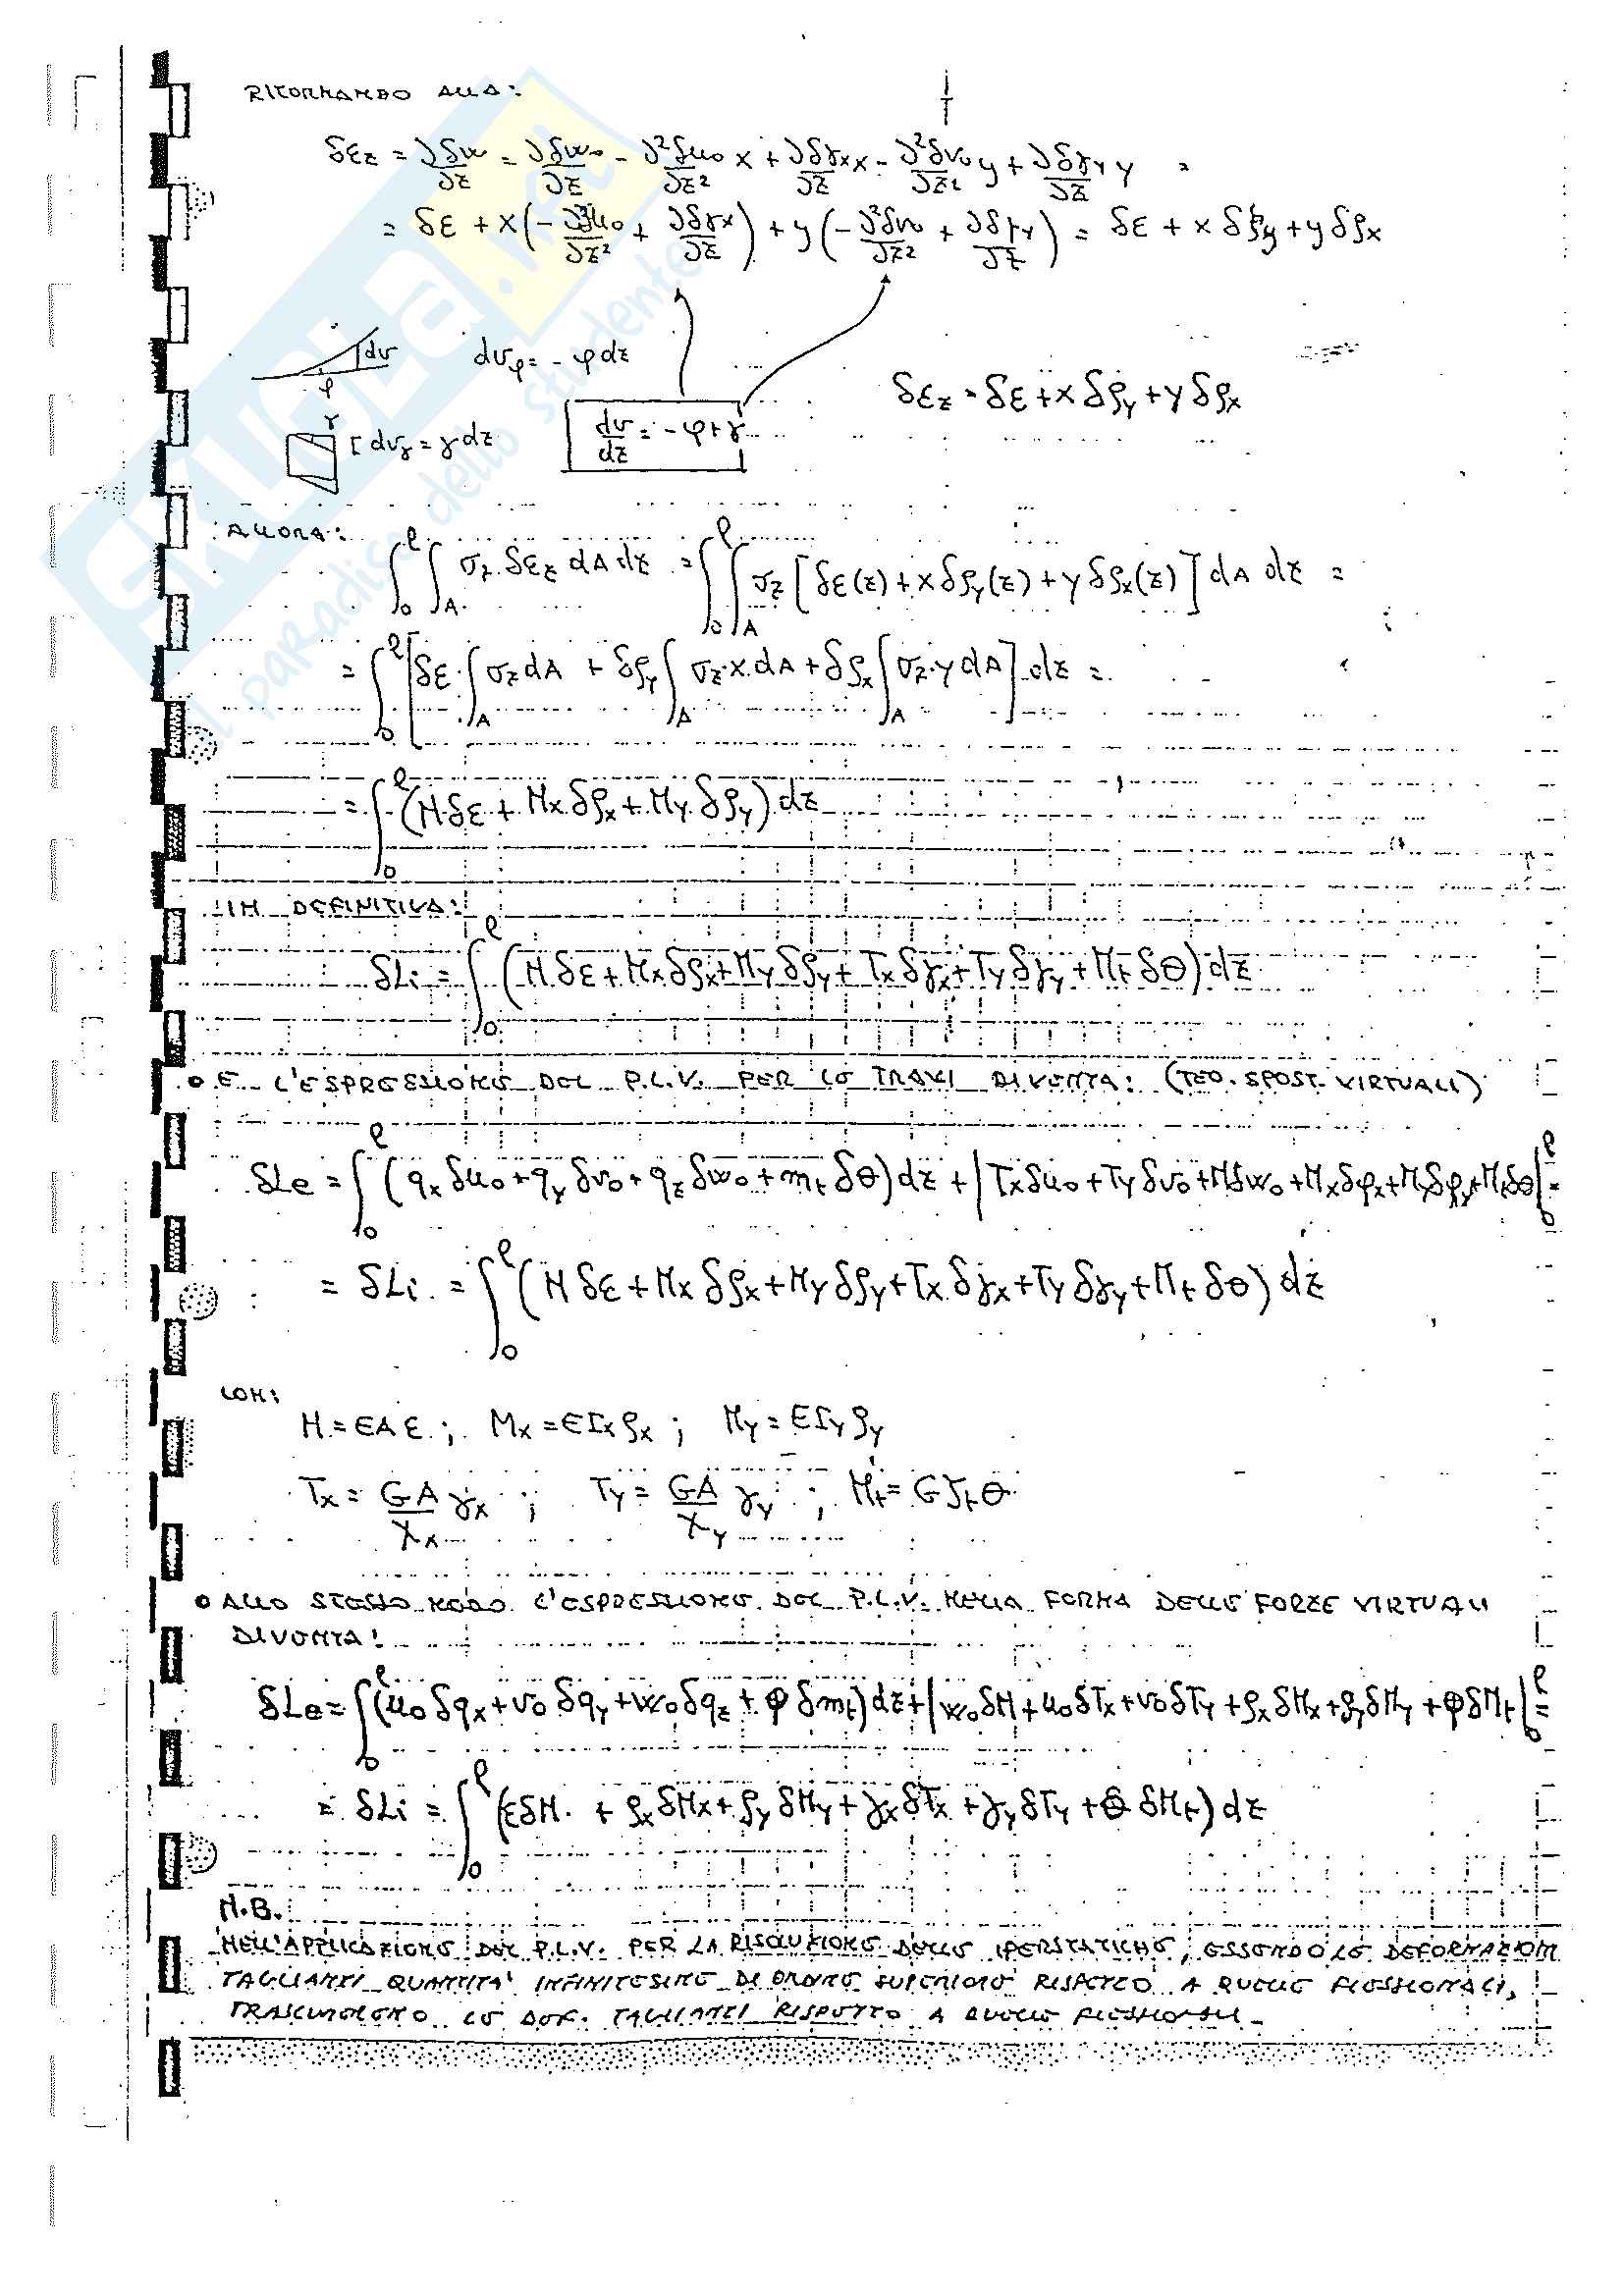 RITORNANDO ALLA:
δεz = ∂δw/∂z = ∂δw₀/∂z - ∂²δu₀/∂z² x + ∂δγx/∂z x - ∂²δv₀/∂z² y + ∂δγy/∂z y =
= δε + x(-∂²δu₀/∂z² + ∂δγx/∂z) + y(-∂²δv₀/∂z² + ∂δγy/∂z) = δε + x δρy + y δρx
dv
φ
dvφ = - φ dz
γ
[ dvγ = γ dz
dv/dz = - φ + γ
δεz = δε + x δρy + y δρx
ALLORA:
∫₀ˡ ∫A σz δεz dA dz = ∫₀ˡ ∫A σz [δε(z) + x δρy(z) + y δρx(z)] dA dz =
= ∫₀ˡ [δε · ∫A σz dA + δρy ∫A σz · x dA + δρx ∫A σz · y dA] dz =
= ∫₀ˡ (N δε + Mx δρx + My δρy) dz
IN DEFINITIVA:
δLi = ∫₀ˡ (N δε + Mx δρx + My δρy + Tx δγx + Ty δγy + Mt δθ) dz
• E L'ESPRESSIONE DEL P.L.V. PER LE TRAVI DIVENTA: (TEO. SPOST. VIRTUALI)
δLe = ∫₀ˡ (qx δu₀ + qy δv₀ + qz δw₀ + mt δθ) dz + |Tx δu₀ + Ty δv₀ + N δw₀ + Mx δφx + My δφy + Mt δθ|₀ˡ =
= δLi = ∫₀ˡ (N δε + Mx δρx + My δρy + Tx δγx + Ty δγy + Mt δθ) dz
CON:
N = EA ε ; Mx = EIx ρx ; My = EIy ρy
Tx = GA/χx γx ; Ty = GA/χy γy ; Mt = G Jt θ
• ALLO STESSO MODO L'ESPRESSIONE DEL P.L.V. NELLA FORMA DELLE FORZE VIRTUALI
DIVENTA:
δLe = ∫₀ˡ (u₀ δqx + v₀ δqy + w₀ δqz + φ δmt) dz + |w₀ δN + u₀ δTx + v₀ δTy + ρx δMx + ρy δMy + φ δMt|₀ˡ =
= δLi = ∫₀ˡ (ε δN + ρx δMx + ρy δMy + γx δTx + γy δTy + θ δMt) dz
N.B.
NELL'APPLICAZIONE DEL P.L.V. PER LA RISOLUZIONE DELLE IPERSTATICHE, ESSENDO LE DEFORMAZIONI
TAGLIANTI QUANTITA' INFINITESIME DI ORDINE SUPERIORE RISPETTO A QUELLE FLESSIONALI,
TRASCUREREMO LE DEF. TAGLIANTI RISPETTO A QUELLE FLESSIONALI.
SKUOLA.net
il paradiso dello studente